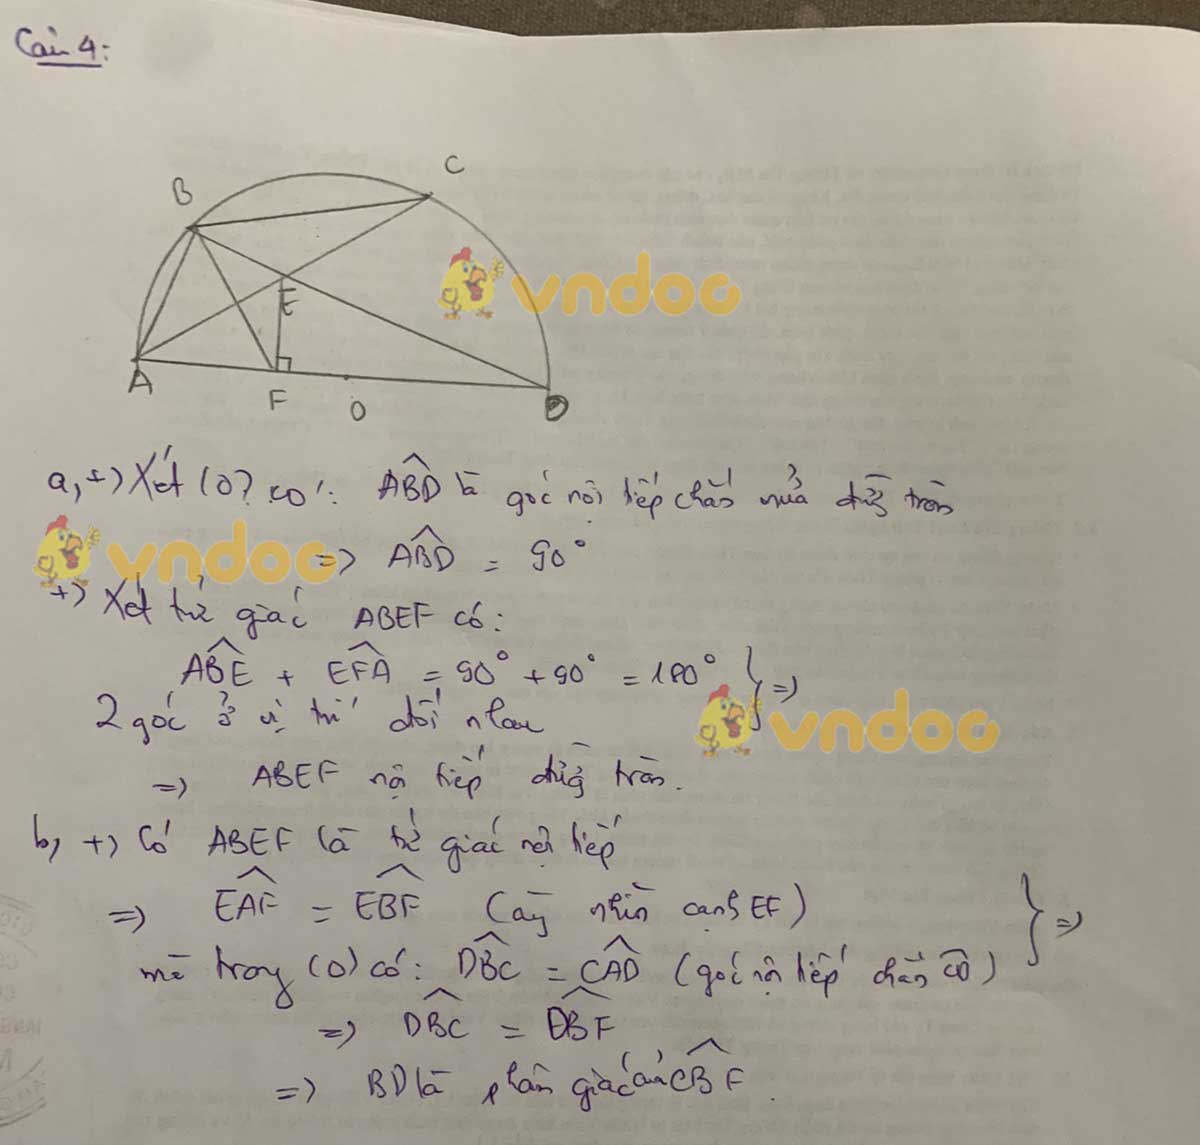 Câu 4:
B
C
E
A
F
O
D
a, +) Xét (O) có: ABD là góc nội tiếp chắn nửa đường tròn
vndoc
vndoc
=> ABD = 90°
+) Xét tứ giác ABEF có:
ABE + EFA = 90° + 90° = 180° } =>
2 góc ở vị trí đối nhau
vndoc
=> ABEF nội tiếp đường tròn.
b, +) Có ABEF là tứ giác nội tiếp
=> EAF = EBF (cùng nhìn cạnh EF) } =>
mà trong (O) có: DBC = CAD (góc nội tiếp chắn CD)
=> DBC = DBF
=> BD là phân giác của CBF.